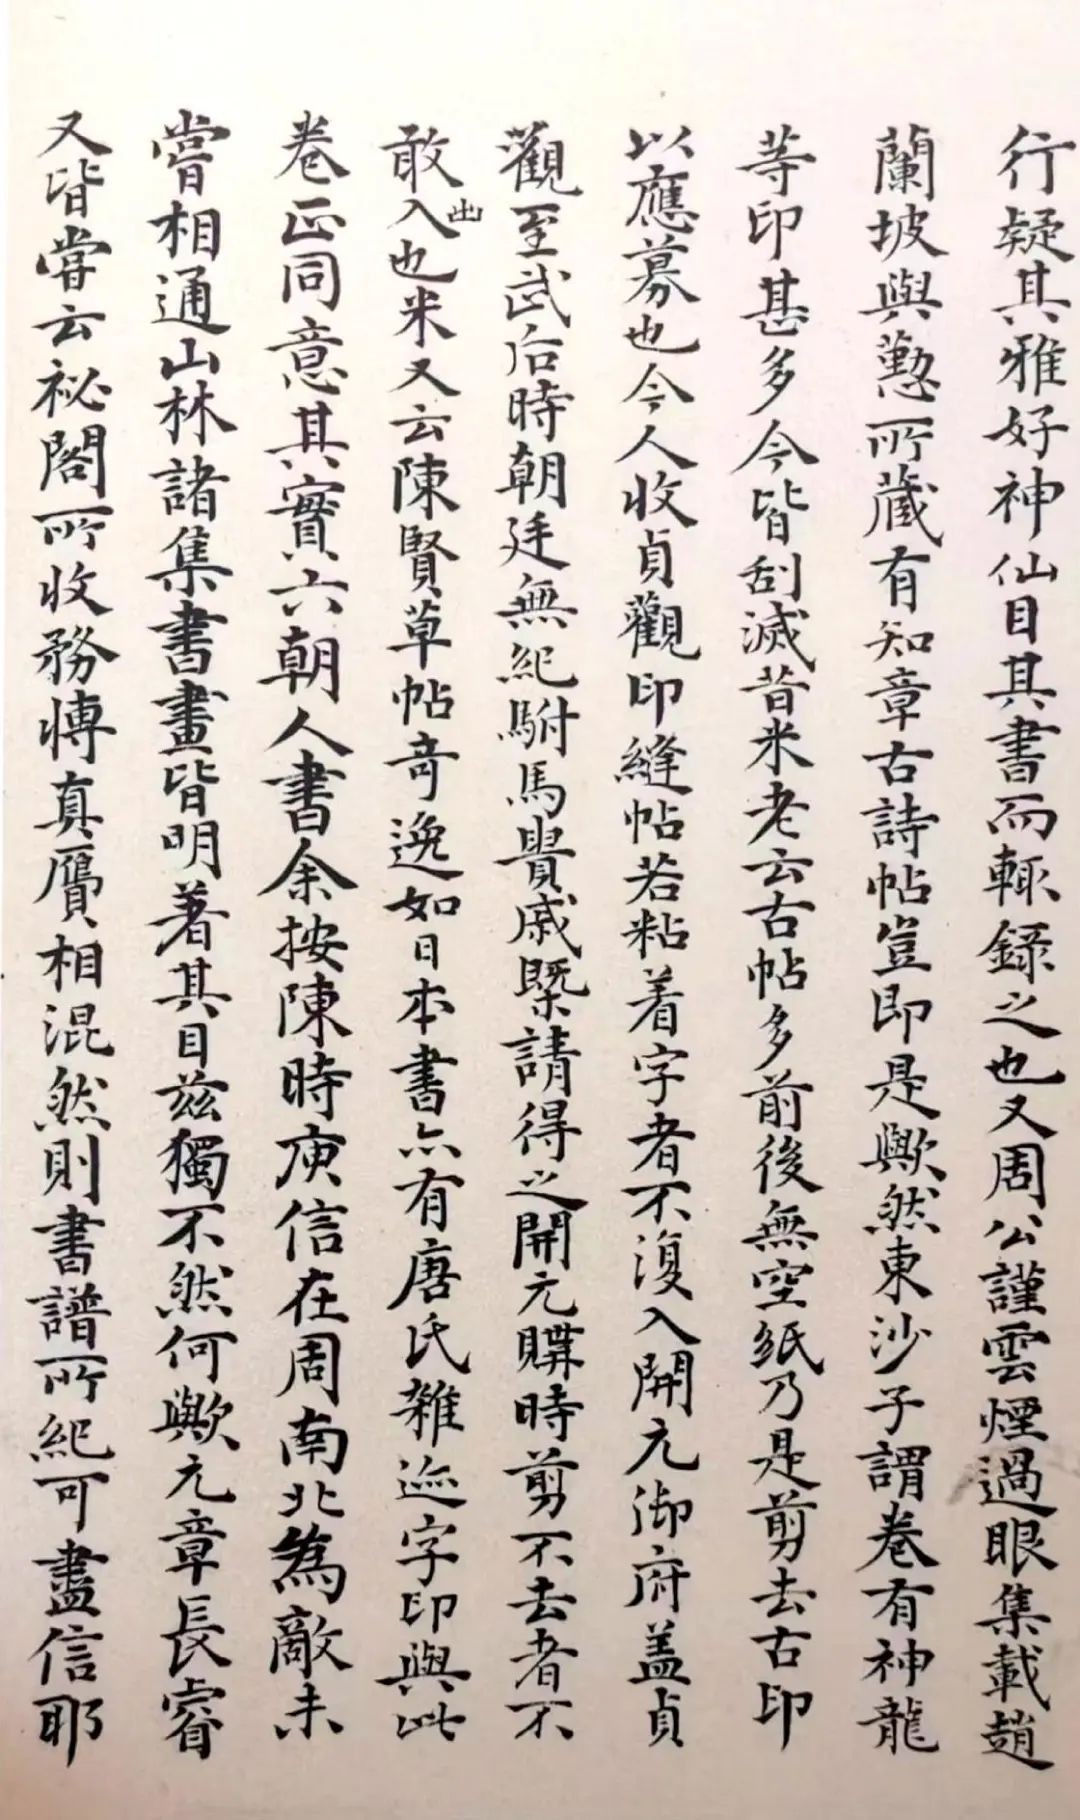 行疑其雅好神仙目其書而輙錄之也又周公謹雲煙過眼集載趙
蘭坡與懃所藏有知章古詩帖豈即是歟然東沙子謂卷有神龍
等印甚多今皆刮滅昔米老云古帖多前後無空紙乃是剪去古印
以應募也今人收貞觀印縫帖若粘着字者不復入開元御府盖貞
觀至武后時朝廷無紀駙馬貴戚曁請得之開元購時剪不去者不
敢入出也米又云陳賢草帖奇逸如日本書亦有唐氏雜迹字印與此
卷正同意其實六朝人書余按陳時庾信在周南北為敵未
嘗相通山林諸集書畫皆明著其目兹獨不然何歟元章長睿
又皆嘗云祕閣所收務博真贗相混然則書譜所紀可盡信耶